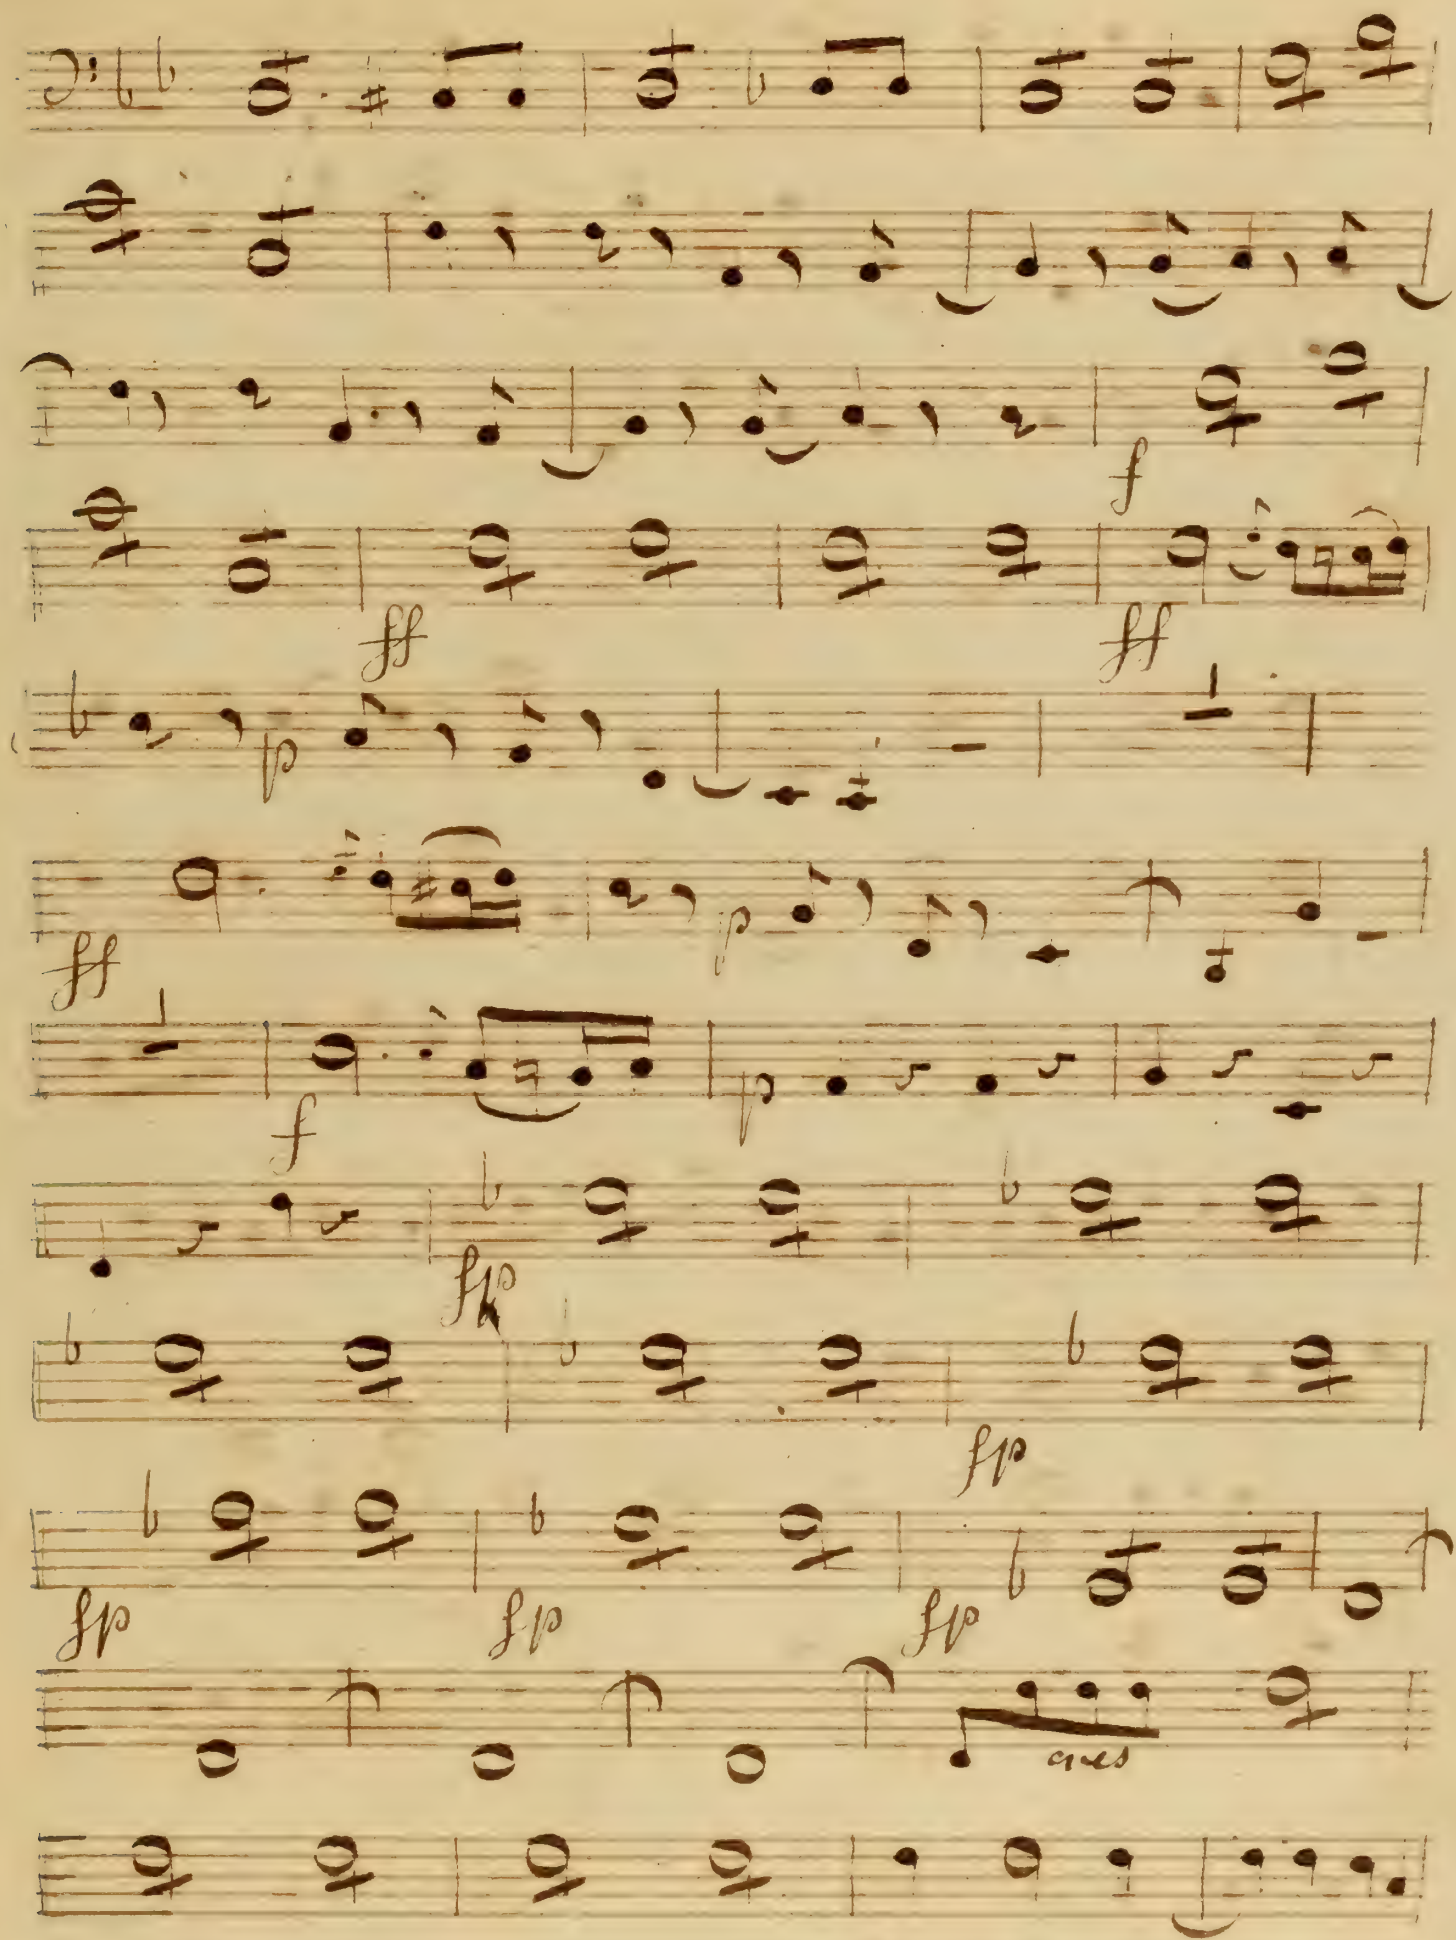 f
ff ff
p
ff p
f p
fp
fp
fp fp fp
cres